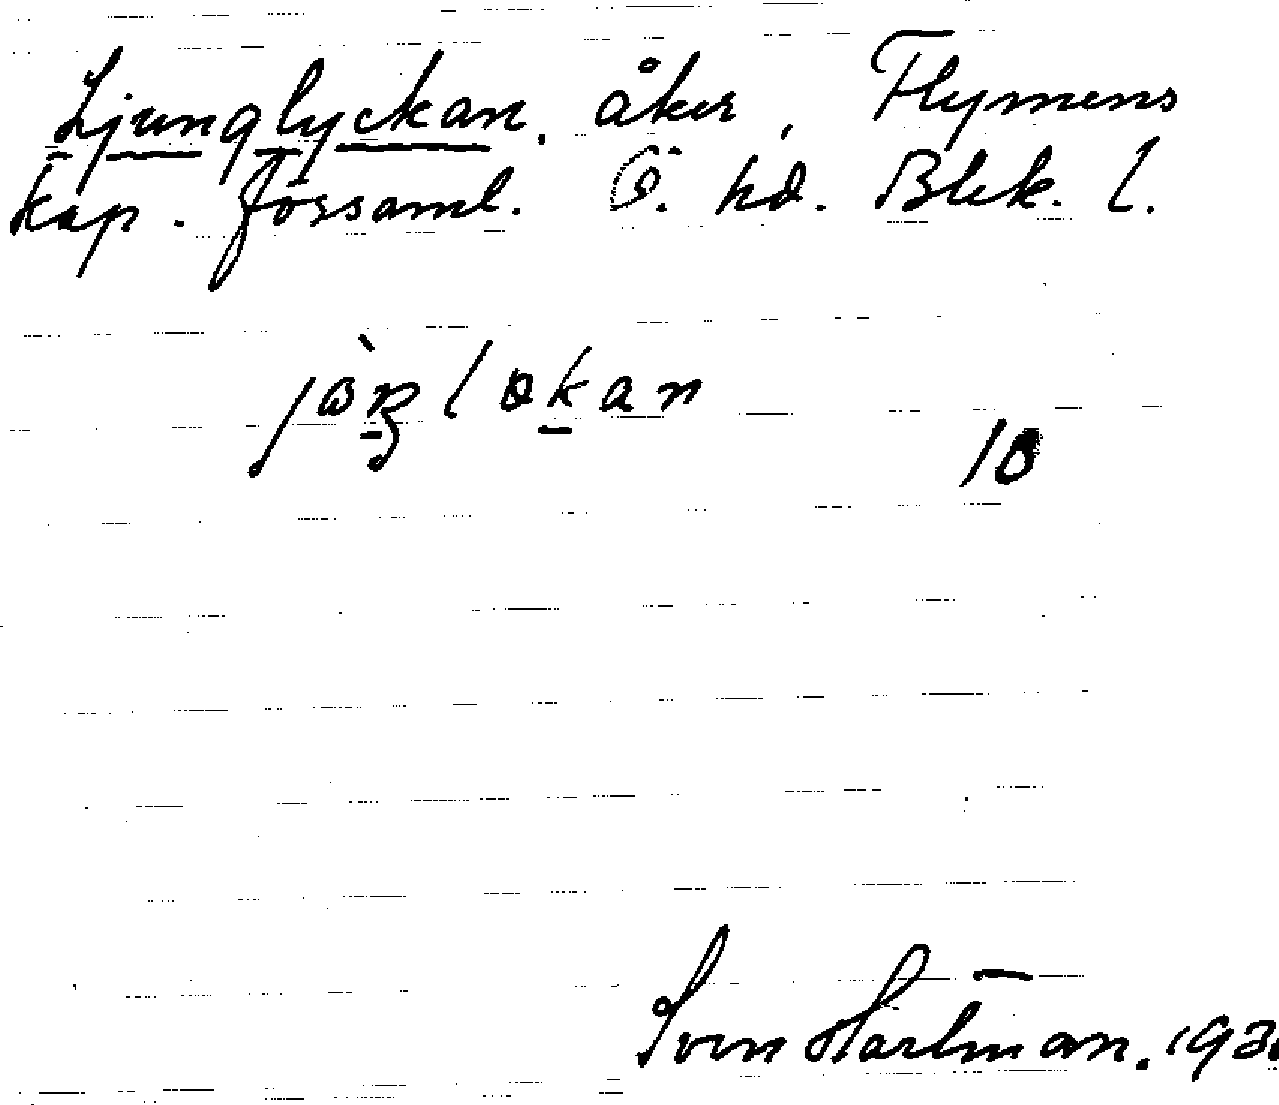 Ljunglyckan. åker, Flymens
kap. församl. Ö. hd. Blek. l.
10
Sven Hartman. 193